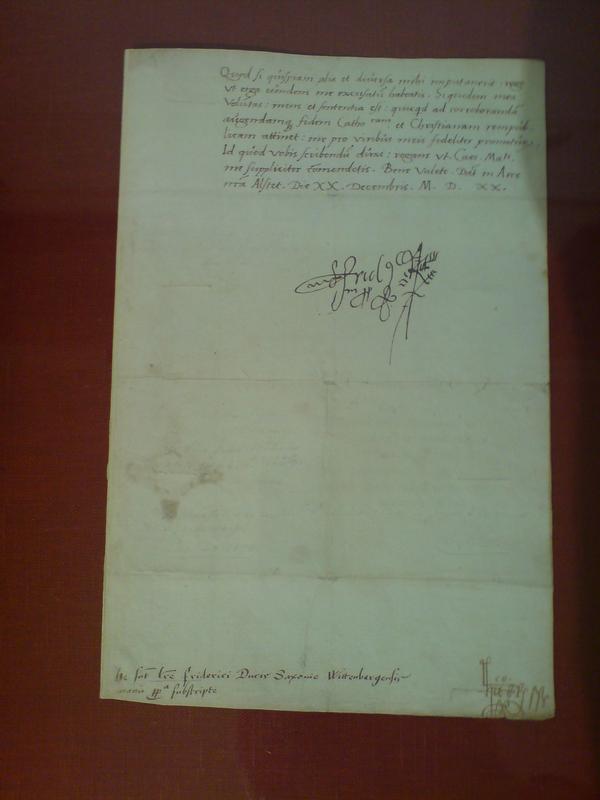 Quod si quispiam alia et diversa mihi imputaverit: rogo
Vt erga eundem me excusatū habeatis. Siquidem mea
Volūtas: mens et sententia est: quicqd ad corroborandā
augendamq fidem Catho cam et Christianam rempub-
licam attinet: me pro viribus meis fideliter
Id quod vobis scribendū: rogans vt Caes. Mati.
me suppliciter cōmendetis. Bene Valete. Dat in
Alstet. Die XX. Decembris. M. D. XX.
Frid
Friderici Ducis Saxonie Wittenbergensis
manu subscripte